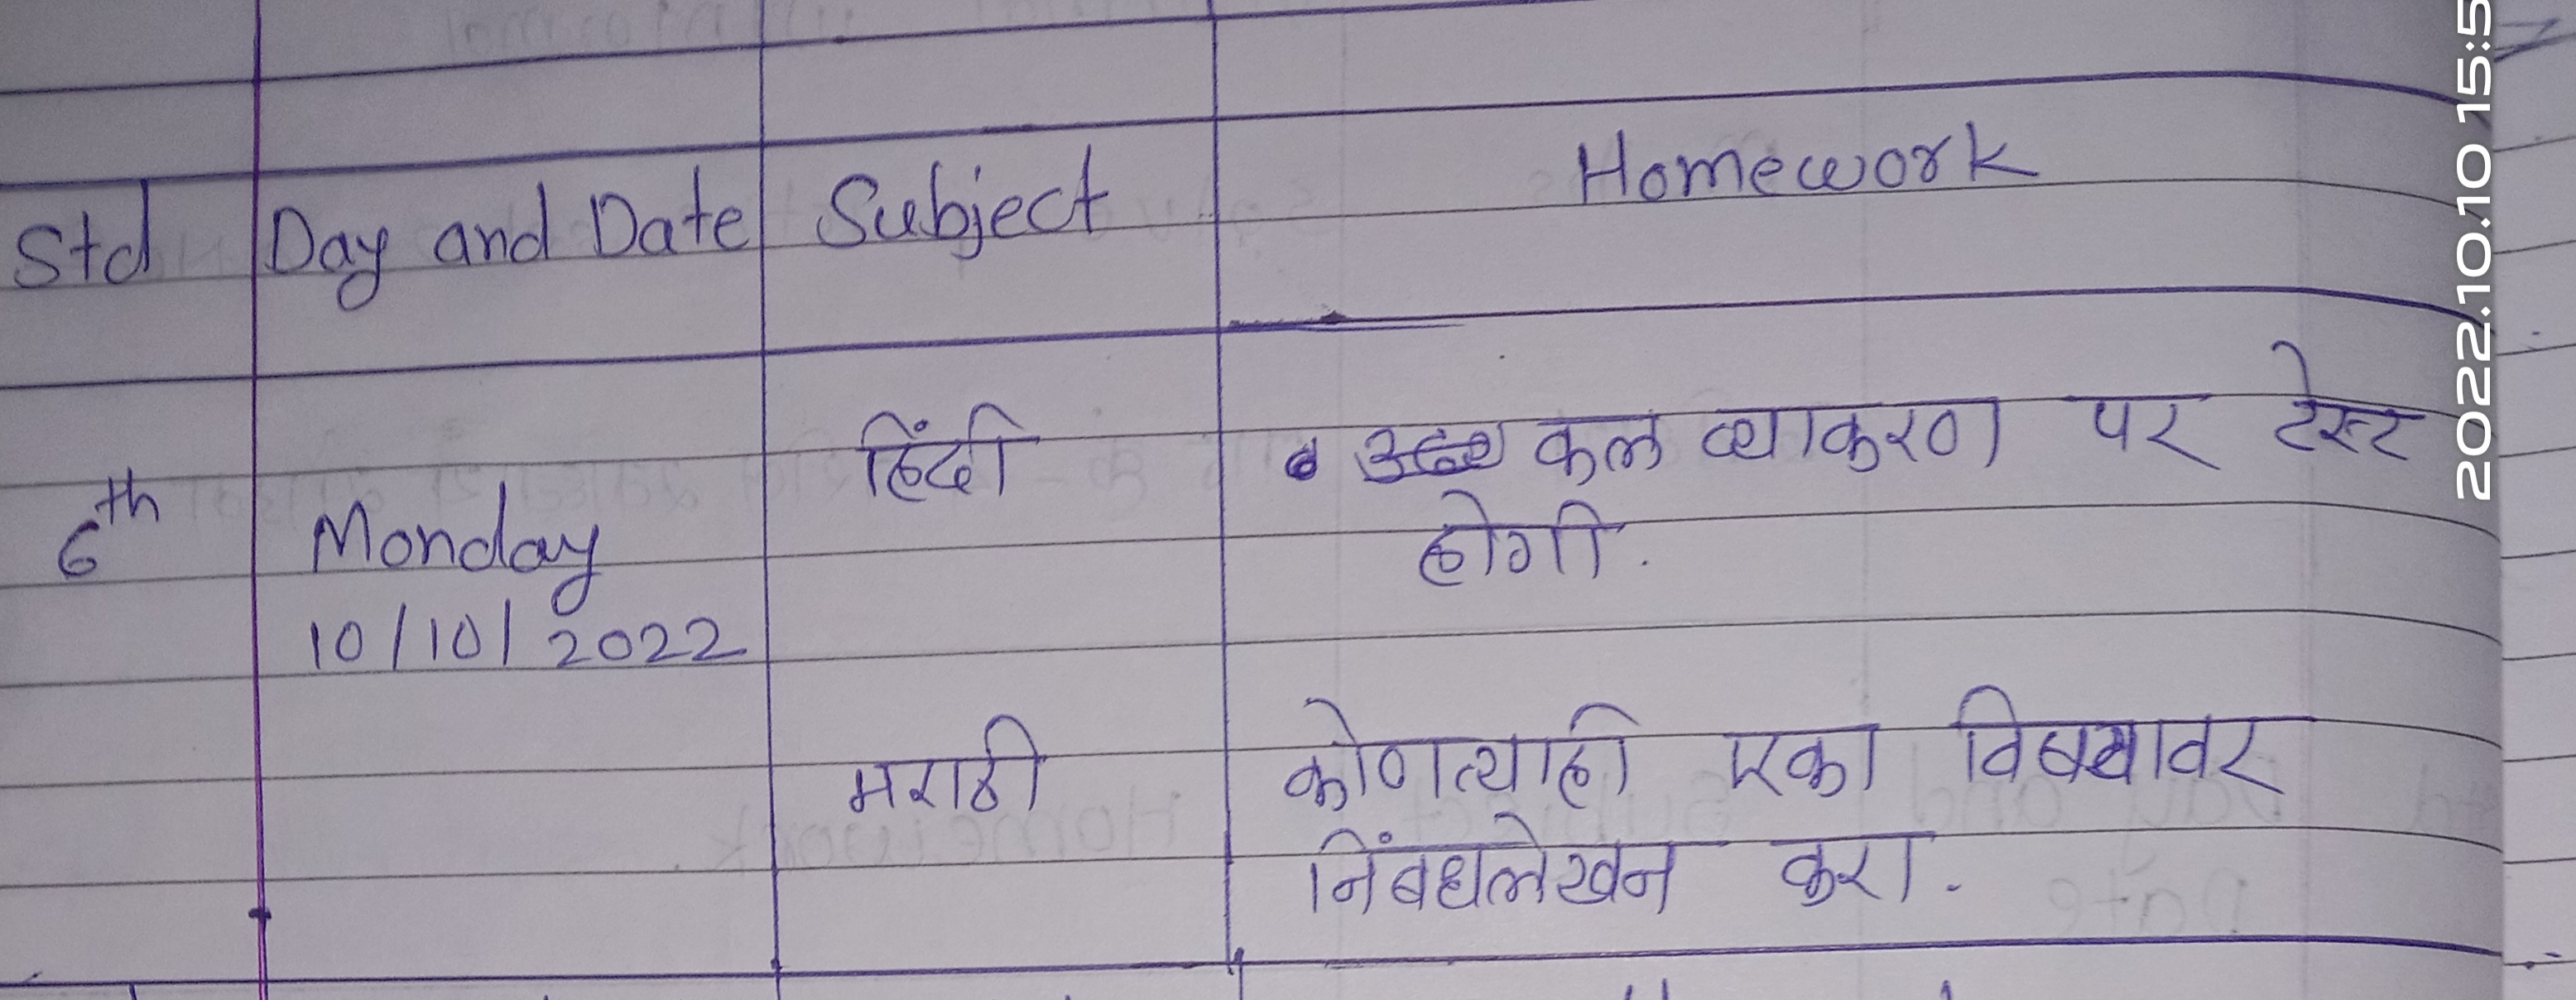 Std Day and Date Subject Homework
हिंदी कल व्याकरण पर टेस्ट
6th Monday होगी.
10/10/2022
मराठी कोणत्याही एका विषयावर
निंबधलेखन करा.
2022.10.10 15:5